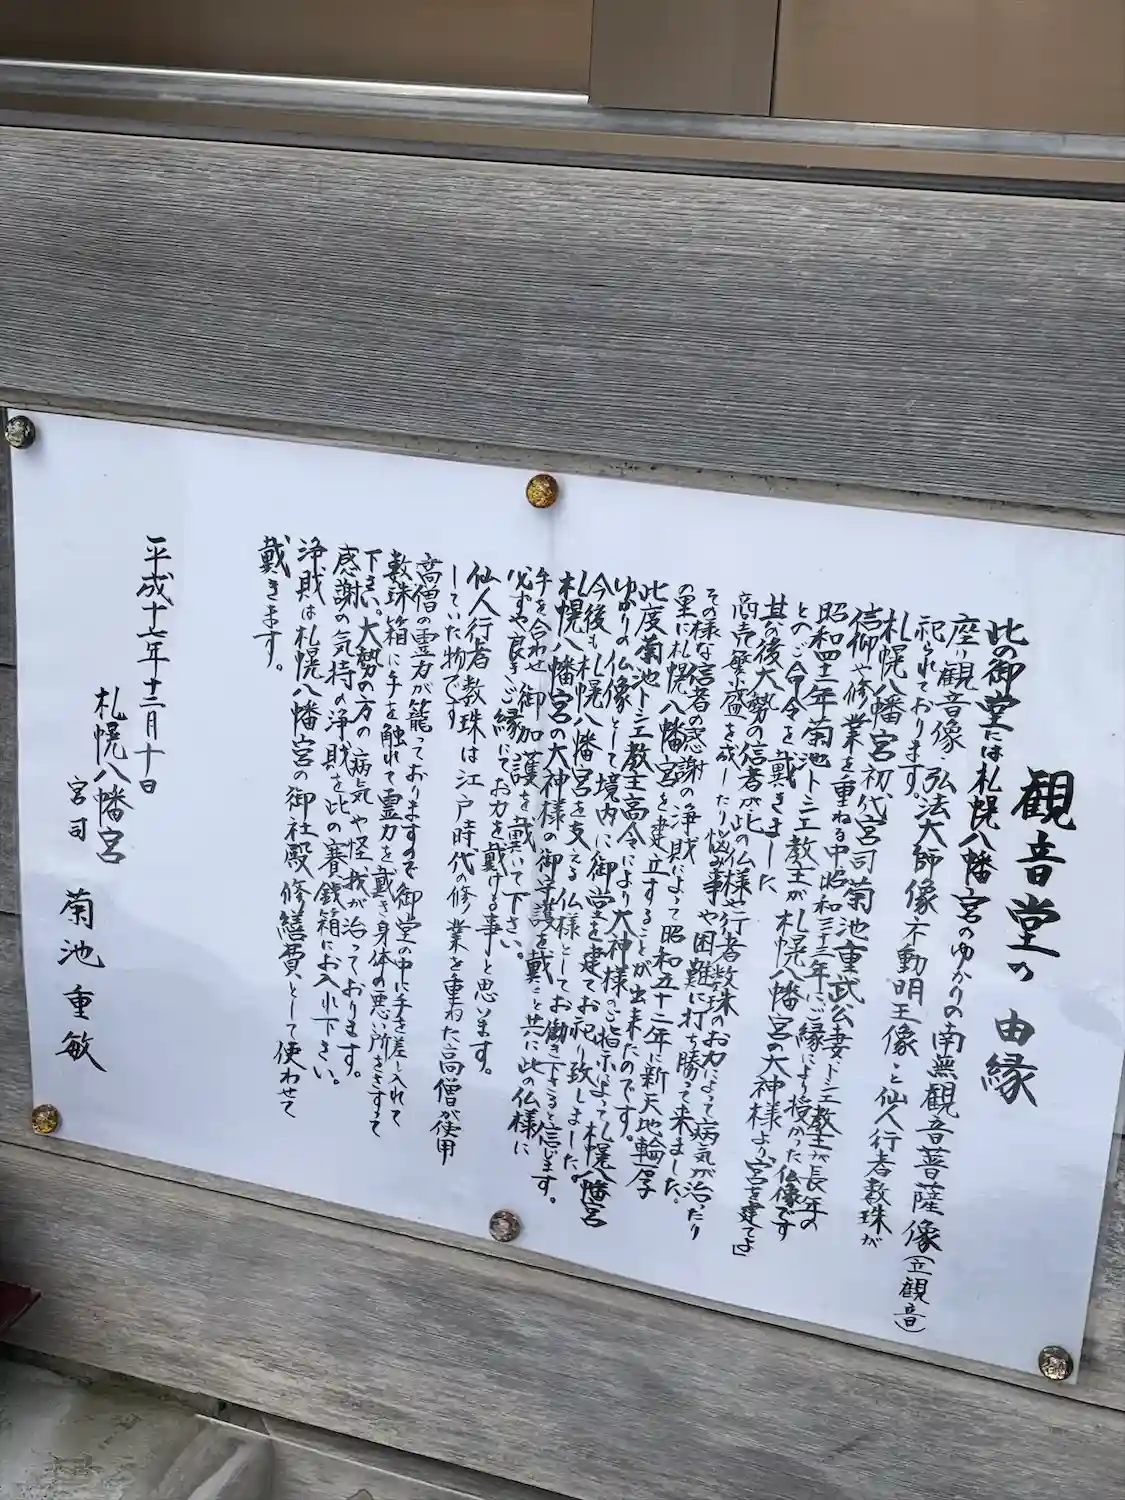 観音堂の由縁
此の御堂には札幌八幡宮のゆかりの南無観音菩薩像(立観音)
座り観音像・弘法大師像・不動明王像・と仙人行者数珠が
祀られております。
札幌八幡宮初代宮司菊池重武公妻トシエ教主が長年の
信仰や修業を重ねる中昭和三十三年にご縁により授かった仏像です
昭和四十二年菊池トシエ教主が札幌八幡宮の大神様より「宮を建てよ」
とのご命令を戴きました
其の後大勢の信者が此の仏様と行者数珠のお力によって病気が治ったり
商売繁盛を成したり悩み事や困難に打ち勝って来ました。
その様な信者の感謝の浄財によって昭和五十二年に新天地輪厚
の里に札幌八幡宮を建立することが出来たのです。
此度菊池トシエ教主高令により大神様のご指示によって札幌八幡宮
ゆかりの仏像として境内に御堂を建てお祀り致しました。
今後も札幌八幡宮を支える仏様としてお働き下さると信じます。
札幌八幡宮の大神様の御守護を戴くと共に此の仏様に
手を合わせ御加護を戴いて下さい。
必ずや良きご縁にてお力を戴ける事と思います。
仙人行者数珠は江戸時代の修業を重ねた高僧が使用
していた物です
高僧の霊力が籠っておりますので御堂の中に手を差し入れて
数珠箱に手を触れて霊力を戴き身体の悪い所をさすって
下さい。大勢の方の病気や怪我が治っております。
感謝の気持の浄財を此の賽銭箱にお入れ下さい。
浄財は札幌八幡宮の御社殿修繕費として使わせて
戴きます。
平成十七年十二月十日
札幌八幡宮
宮司 菊池重敏